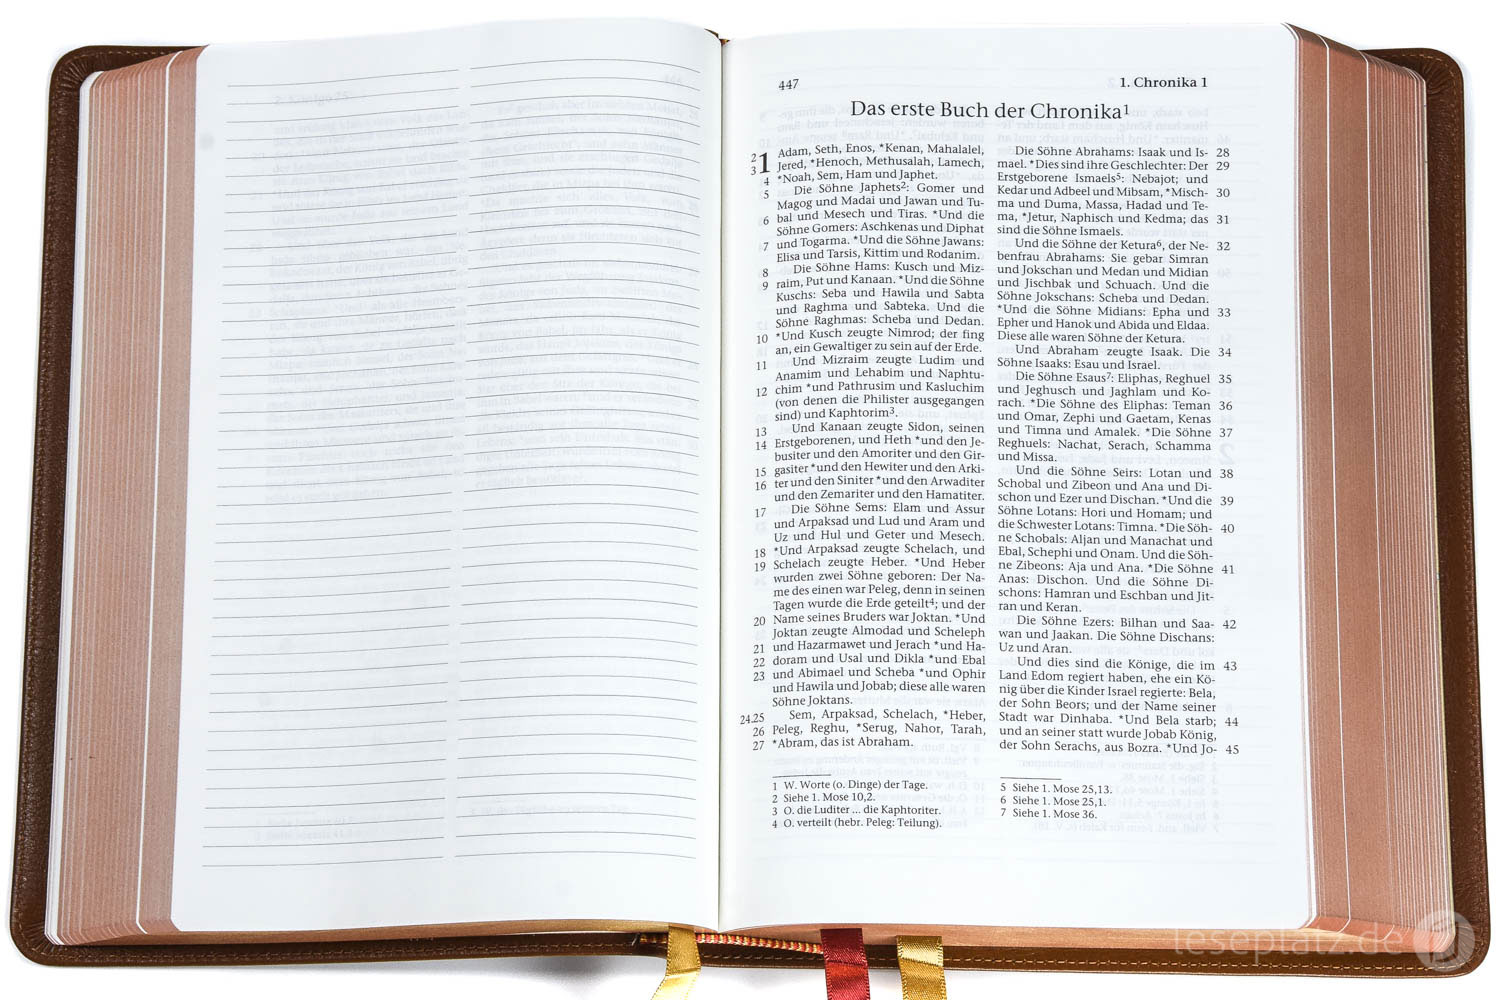 447
1. Chronika 1
Das erste Buch der Chronika1
2 1 Adam, Seth, Enos, *Kenan, Mahalalel,
3 Jered, *Henoch, Methusalah, Lamech,
4 *Noah, Sem, Ham und Japhet.
5 Die Söhne Japhets2: Gomer und
Magog und Madai und Jawan und Tu-
6 bal und Mesech und Tiras. *Und die
Söhne Gomers: Aschkenas und Diphat
7 und Togarma. *Und die Söhne Jawans:
Elisa und Tarsis, Kittim und Rodanim.
8 Die Söhne Hams: Kusch und Miz-
9 raim, Put und Kanaan. *Und die Söhne
Kuschs: Seba und Hawila und Sabta
und Raghma und Sabteka. Und die
Söhne Raghmas: Scheba und Dedan.
10 *Und Kusch zeugte Nimrod; der fing
an, ein Gewaltiger zu sein auf der Erde.
11 Und Mizraim zeugte Ludim und
Anamim und Lehabim und Naphtu-
12 chim *und Pathrusim und Kasluchim
(von denen die Philister ausgegangen
sind) und Kaphtorim3.
13 Und Kanaan zeugte Sidon, seinen
14 Erstgeborenen, und Heth *und den Je-
busiter und den Amoriter und den Gir-
15 gasiter *und den Hewiter und den Arki-
16 ter und den Siniter *und den Arwaditer
und den Zemariter und den Hamatiter.
17 Die Söhne Sems: Elam und Assur
und Arpaksad und Lud und Aram und
Uz und Hul und Geter und Mesech.
18 *Und Arpaksad zeugte Schelach, und
19 Schelach zeugte Heber. *Und Heber
wurden zwei Söhne geboren: Der Na-
me des einen war Peleg, denn in seinen
Tagen wurde die Erde geteilt4; und der
20 Name seines Bruders war Joktan. *Und
Joktan zeugte Almodad und Scheleph
21 und Hazarmawet und Jerach *und Ha-
22 doram und Usal und Dikla *und Ebal
23 und Abimael und Scheba *und Ophir
und Hawila und Jobab; diese alle waren
Söhne Joktans.
24.25 Sem, Arpaksad, Schelach, *Heber,
26 Peleg, Reghu, *Serug, Nahor, Tarah,
27 *Abram, das ist Abraham.
1 W. Worte (o. Dinge) der Tage.
2 Siehe 1. Mose 10,2.
3 O. die Luditer ... die Kaphtoriter.
4 O. verteilt (hebr. Peleg: Teilung).
Die Söhne Abrahams: Isaak und Is- 28
mael. *Dies sind ihre Geschlechter: Der 29
Erstgeborene Ismaels5: Nebajot; und
Kedar und Adbeel und Mibsam, *Misch- 30
ma und Duma, Massa, Hadad und Te-
ma, *Jetur, Naphisch und Kedma; das 31
sind die Söhne Ismaels.
Und die Söhne der Ketura6, der Ne- 32
benfrau Abrahams: Sie gebar Simran
und Jokschan und Medan und Midian
und Jischbak und Schuach. Und die
Söhne Jokschans: Scheba und Dedan.
*Und die Söhne Midians: Epha und 33
Epher und Hanok und Abida und Eldaa.
Diese alle waren Söhne der Ketura.
Und Abraham zeugte Isaak. Die 34
Söhne Isaaks: Esau und Israel.
Die Söhne Esaus7: Eliphas, Reghuel 35
und Jeghusch und Jaghlam und Ko-
rach. *Die Söhne des Eliphas: Teman 36
und Omar, Zephi und Gaetam, Kenas
und Timna und Amalek. *Die Söhne 37
Reghuels: Nachat, Serach, Schamma
und Missa.
Und die Söhne Seirs: Lotan und 38
Schobal und Zibeon und Ana und Di-
schon und Ezer und Dischan. *Und die 39
Söhne Lotans: Hori und Homam; und
die Schwester Lotans: Timna. *Die Söh- 40
ne Schobals: Aljan und Manachat und
Ebal, Schephi und Onam. Und die Söh-
ne Zibeons: Aja und Ana. *Die Söhne 41
Anas: Dischon. Und die Söhne Di-
schons: Hamran und Eschban und Jit-
ran und Keran.
Die Söhne Ezers: Bilhan und Saa- 42
wan und Jaakan. Die Söhne Dischans:
Uz und Aran.
Und dies sind die Könige, die im 43
Land Edom regiert haben, ehe ein Kö-
nig über die Kinder Israel regierte: Bela,
der Sohn Beors; und der Name seiner
Stadt war Dinhaba. *Und Bela starb; 44
und an seiner statt wurde Jobab König,
der Sohn Serachs, aus Bozra. *Und Jo- 45
5 Siehe 1. Mose 25,13.
6 Siehe 1. Mose 25,1.
7 Siehe 1. Mose 36.
leseplatz.de